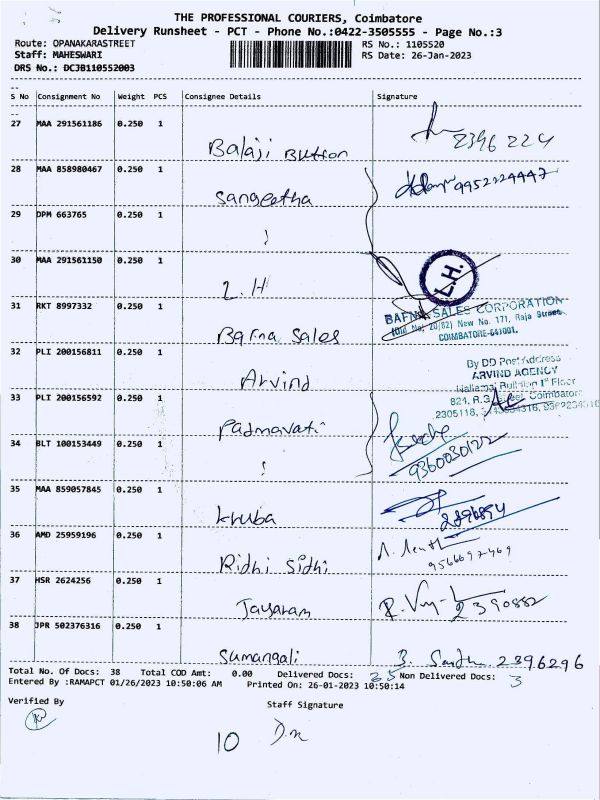 THE PROFESSIONAL COURIERS, Coimbatore
Delivery Runsheet - PCT - Phone No.:0422-3505555 - Page No.:3
Route: OPANAKARASTREET RS No.: 1105520
Staff: MAHESWARI RS Date: 26-Jan-2023
DRS No.: DCJB110552003
S No Consignment No Weight PCS Consignee Details Signature
27 MAA 291561186 0.250 1
Balaji Button 2396224
28 MAA 858980467 0.250 1
Sangeetha 9952224447
29 DPM 663765 0.250 1
30 MAA 291561150 0.250 1
L.H L.H.
31 RKT 8997332 0.250 1
Bafna Sales
BAFNA SALES CORPORATION
(Old No. 20/82) New No. 171, Raja Street,
COIMBATORE-641001.
32 PLI 200156811 0.250 1
Arvind
By DD Post Address
ARVIND AGENCY
Building 1st Floor
824, R.G. Street, Coimbatore
2305118,
33 PLI 200156592 0.250 1
Padmavati
34 BLT 100153449 0.250 1
9360030122
35 MAA 859057845 0.250 1
Kruba 2396894
36 AMD 25959196 0.250 1
Ridhi Sidhi 9566697469
37 HSR 2624256 0.250 1
Jayaram 2390882
38 JPR 502376316 0.250 1
Sumangali 2396296
Total No. Of Docs: 38 Total COD Amt: 0.00 Delivered Docs: 35 Non Delivered Docs: 3
Entered By :RAMAPCT 01/26/2023 10:50:06 AM Printed On: 26-01-2023 10:50:14
Verified By Staff Signature
10